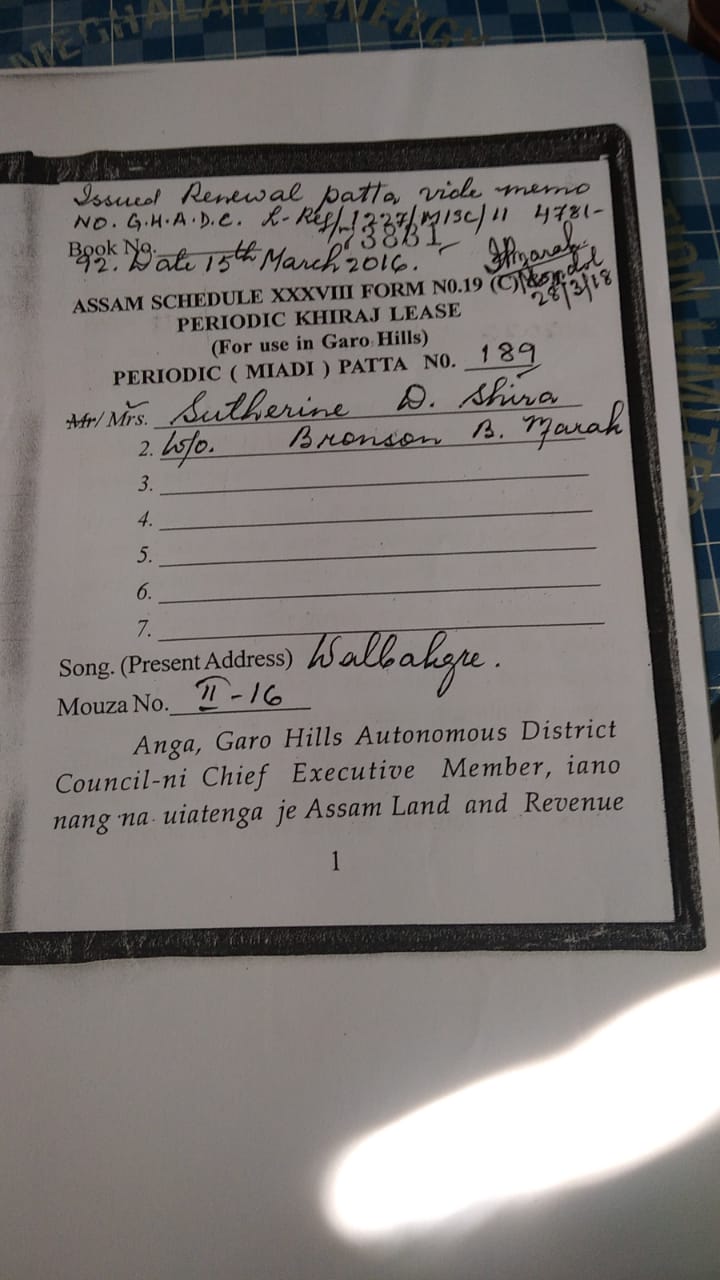 MEGHALAYA ENERGY
Issued Renewal patta vide memo
NO. G.H.A.D.C. L-Reg/1227/MISC/11 4781-
Book No. 3881
92. Date 15th March 2016.
28/3/18
ASSAM SCHEDULE XXXVIII FORM N0.19 (C)
PERIODIC KHIRAJ LEASE
(For use in Garo Hills)
PERIODIC ( MIADI ) PATTA N0. 189
Mr/ Mrs. Sutherine D. Shira
2. W/o. Bronson B. Marak
3.
4.
5.
6.
7.
Song. (Present Address) Walbakgre.
Mouza No. II-16
Anga, Garo Hills Autonomous District
Council-ni Chief Executive Member, iano
nang na uiatenga je Assam Land and Revenue
1